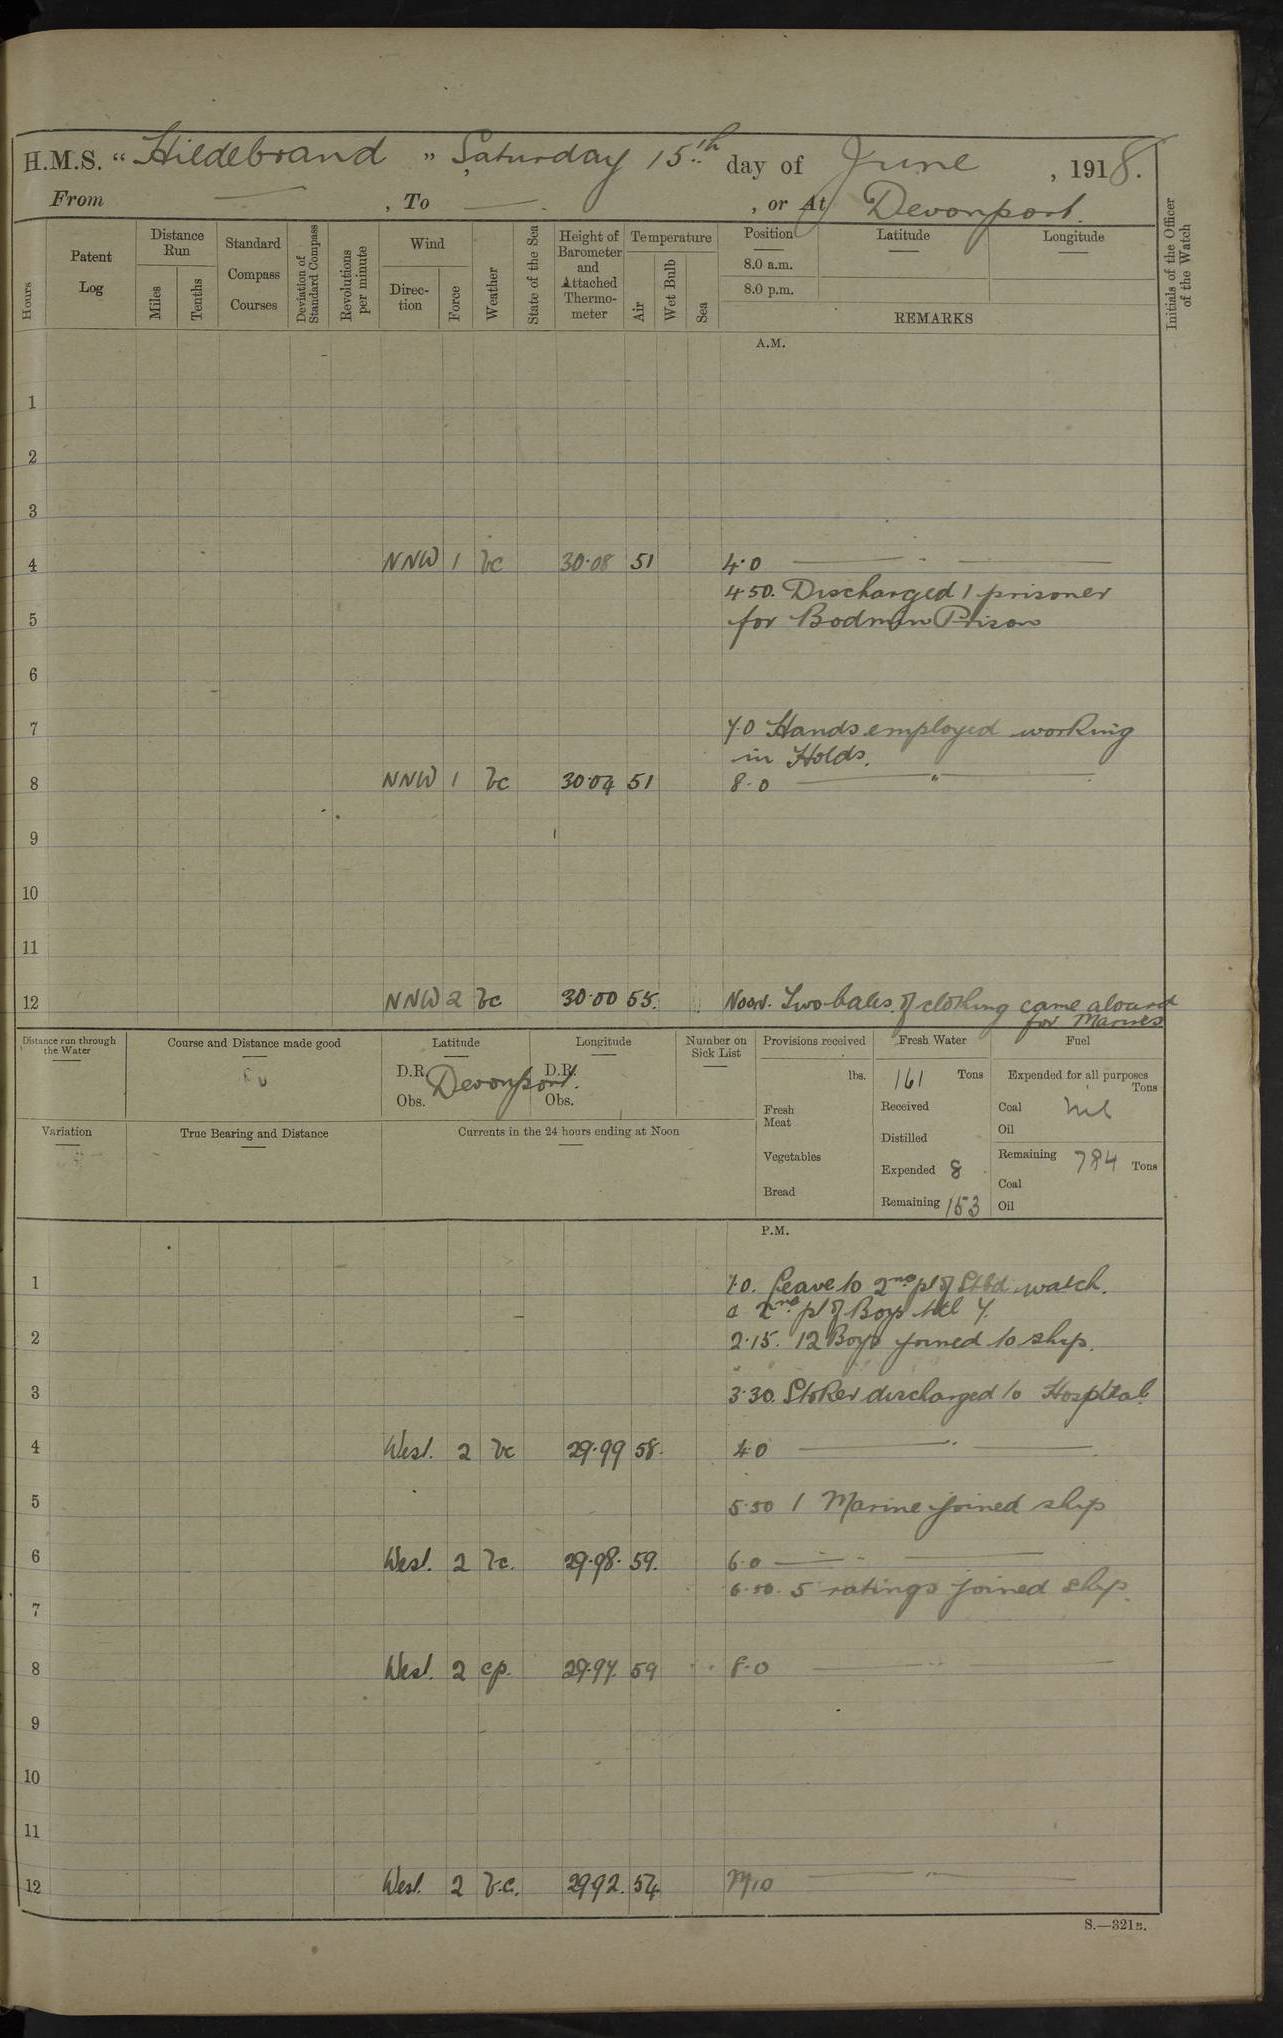 H.M.S. “ Hildebrand ” Saturday 15th day of June , 1918.
From — , To — . , or At Devonport.
Hours
Patent Log
Distance Run
Miles
Tenths
Standard Compass Courses
Deviation of Standard Compass
Revolutions per minute
Wind
Direction
Force
Weather
State of the Sea
Height of Barometer and Attached Thermometer
Temperature
Air
Wet Bulb
Sea
Position
8.0 a.m.
8.0 p.m.
Latitude
Longitude
REMARKS
Initials of the Officer of the Watch
A.M.
1
2
3
4 NNW 1 bc 30·08 51 4·0 — " —
4·50. Discharged 1 prisoner
5 for Bodmin Prison
6
7 7·0 Hands employed working
in Holds.
8 NNW 1 bc 30·04 51 8·0 — " —
9
10
11
12 NNW 2 bc 30·00 55. Noon. Two bales of clothing came aboard
for Marines
Distance run through the Water
Course and Distance made good
Latitude
D.R. Devonport.
Obs.
Longitude
D.R.
Obs.
Number on Sick List
Provisions received
lbs.
Fresh Meat
Vegetables
Bread
Fresh Water
161 Tons
Received
Distilled
Expended 8
Remaining 153
Fuel
Expended for all purposes
Tons
Coal Nil
Oil
Remaining 784 Tons
Coal
Oil
Variation
True Bearing and Distance
Currents in the 24 hours ending at Noon
P.M.
1 1·0. Leave to 2nd pt of Stbd watch.
2nd pt of Boys till 7.
2 2·15. 12 Boys joined to ship.
3 3·30. Stoker discharged to Hospital.
4 West. 2 bc 29·99 58. 4·0 — " —
5 5·50 1 Marine joined ship
6 West. 2 b.c. 29·98. 59. 6·0 — " —
6·50. 5 ratings joined ship.
7
8 West. 2 cp. 29·97. 59 8·0 — " —
9
10
11
12 West. 2 b.c. 29·92. 54. — " —
S.—321B.